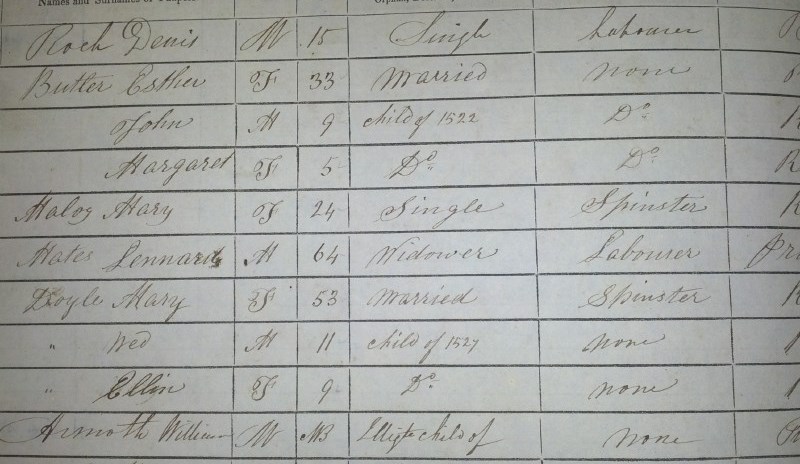 Names and Surnames of Paupers
Roch Denis M 15 Single Labourer
Butler Esther F 33 Married none
John M 9 child of 1522 Do
Margaret F 5 Do Do
Maloy Mary F 24 Single Spinster
Mates Lennard M 64 Widower Labourer
Doyle Mary F 53 Married Spinster
" Wed M 11 child of 1527 none
" Ellin F 9 Do none
William M child of none